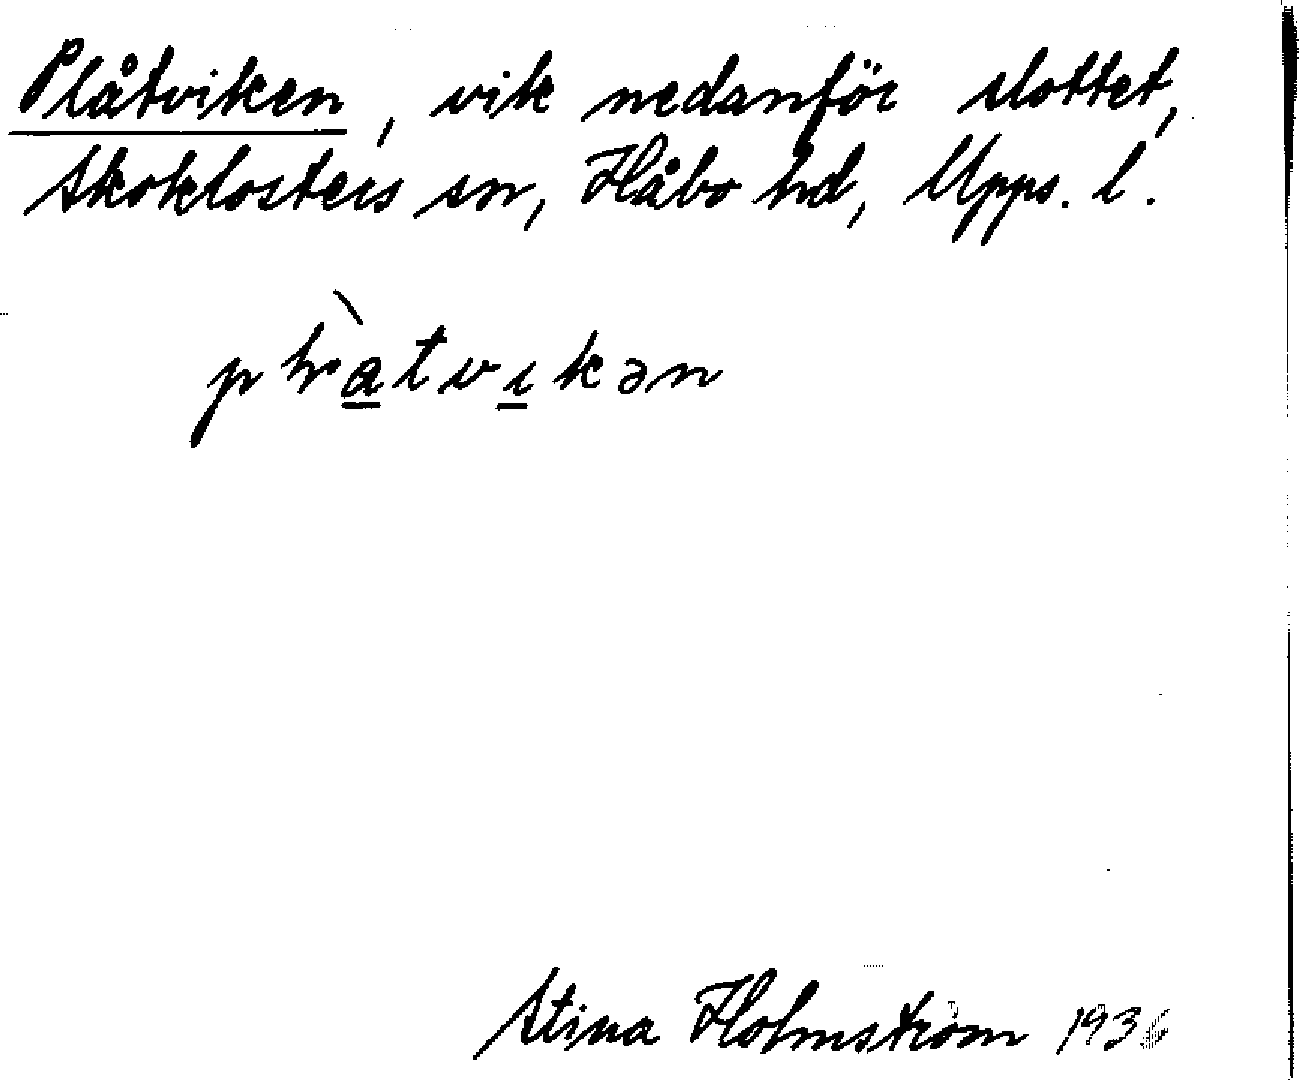 Plåtviken, vik nedanför slottet,
Skoklosters sn, Håbo hd, Upps. l.
Stina Holmström 1936